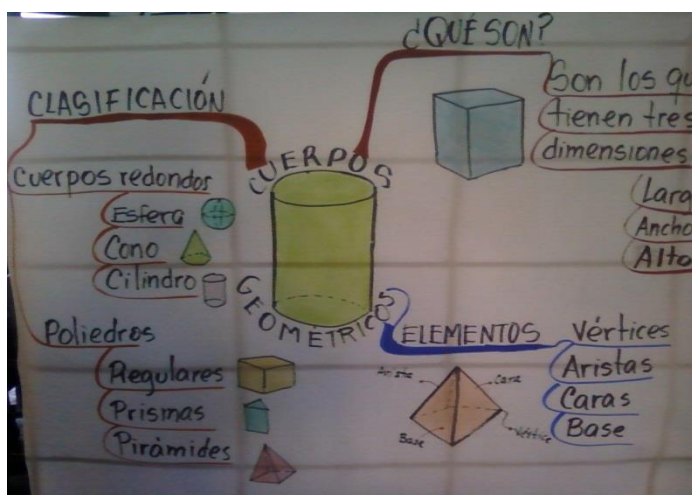 ¿QUÉ SON?
Son los qu
tienen tres
dimensiones
Larg
Ancho
Alto
CLASIFICACIÓN
Cuerpos redondos
Esfera
Cono
Cilindro
Poliedros
Regulares
Prismas
Pirámides
CUERPOS
GEOMÉTRICOS
ELEMENTOS
Vértices
Aristas
Caras
Base
Arista
Cara
Base
Vértice